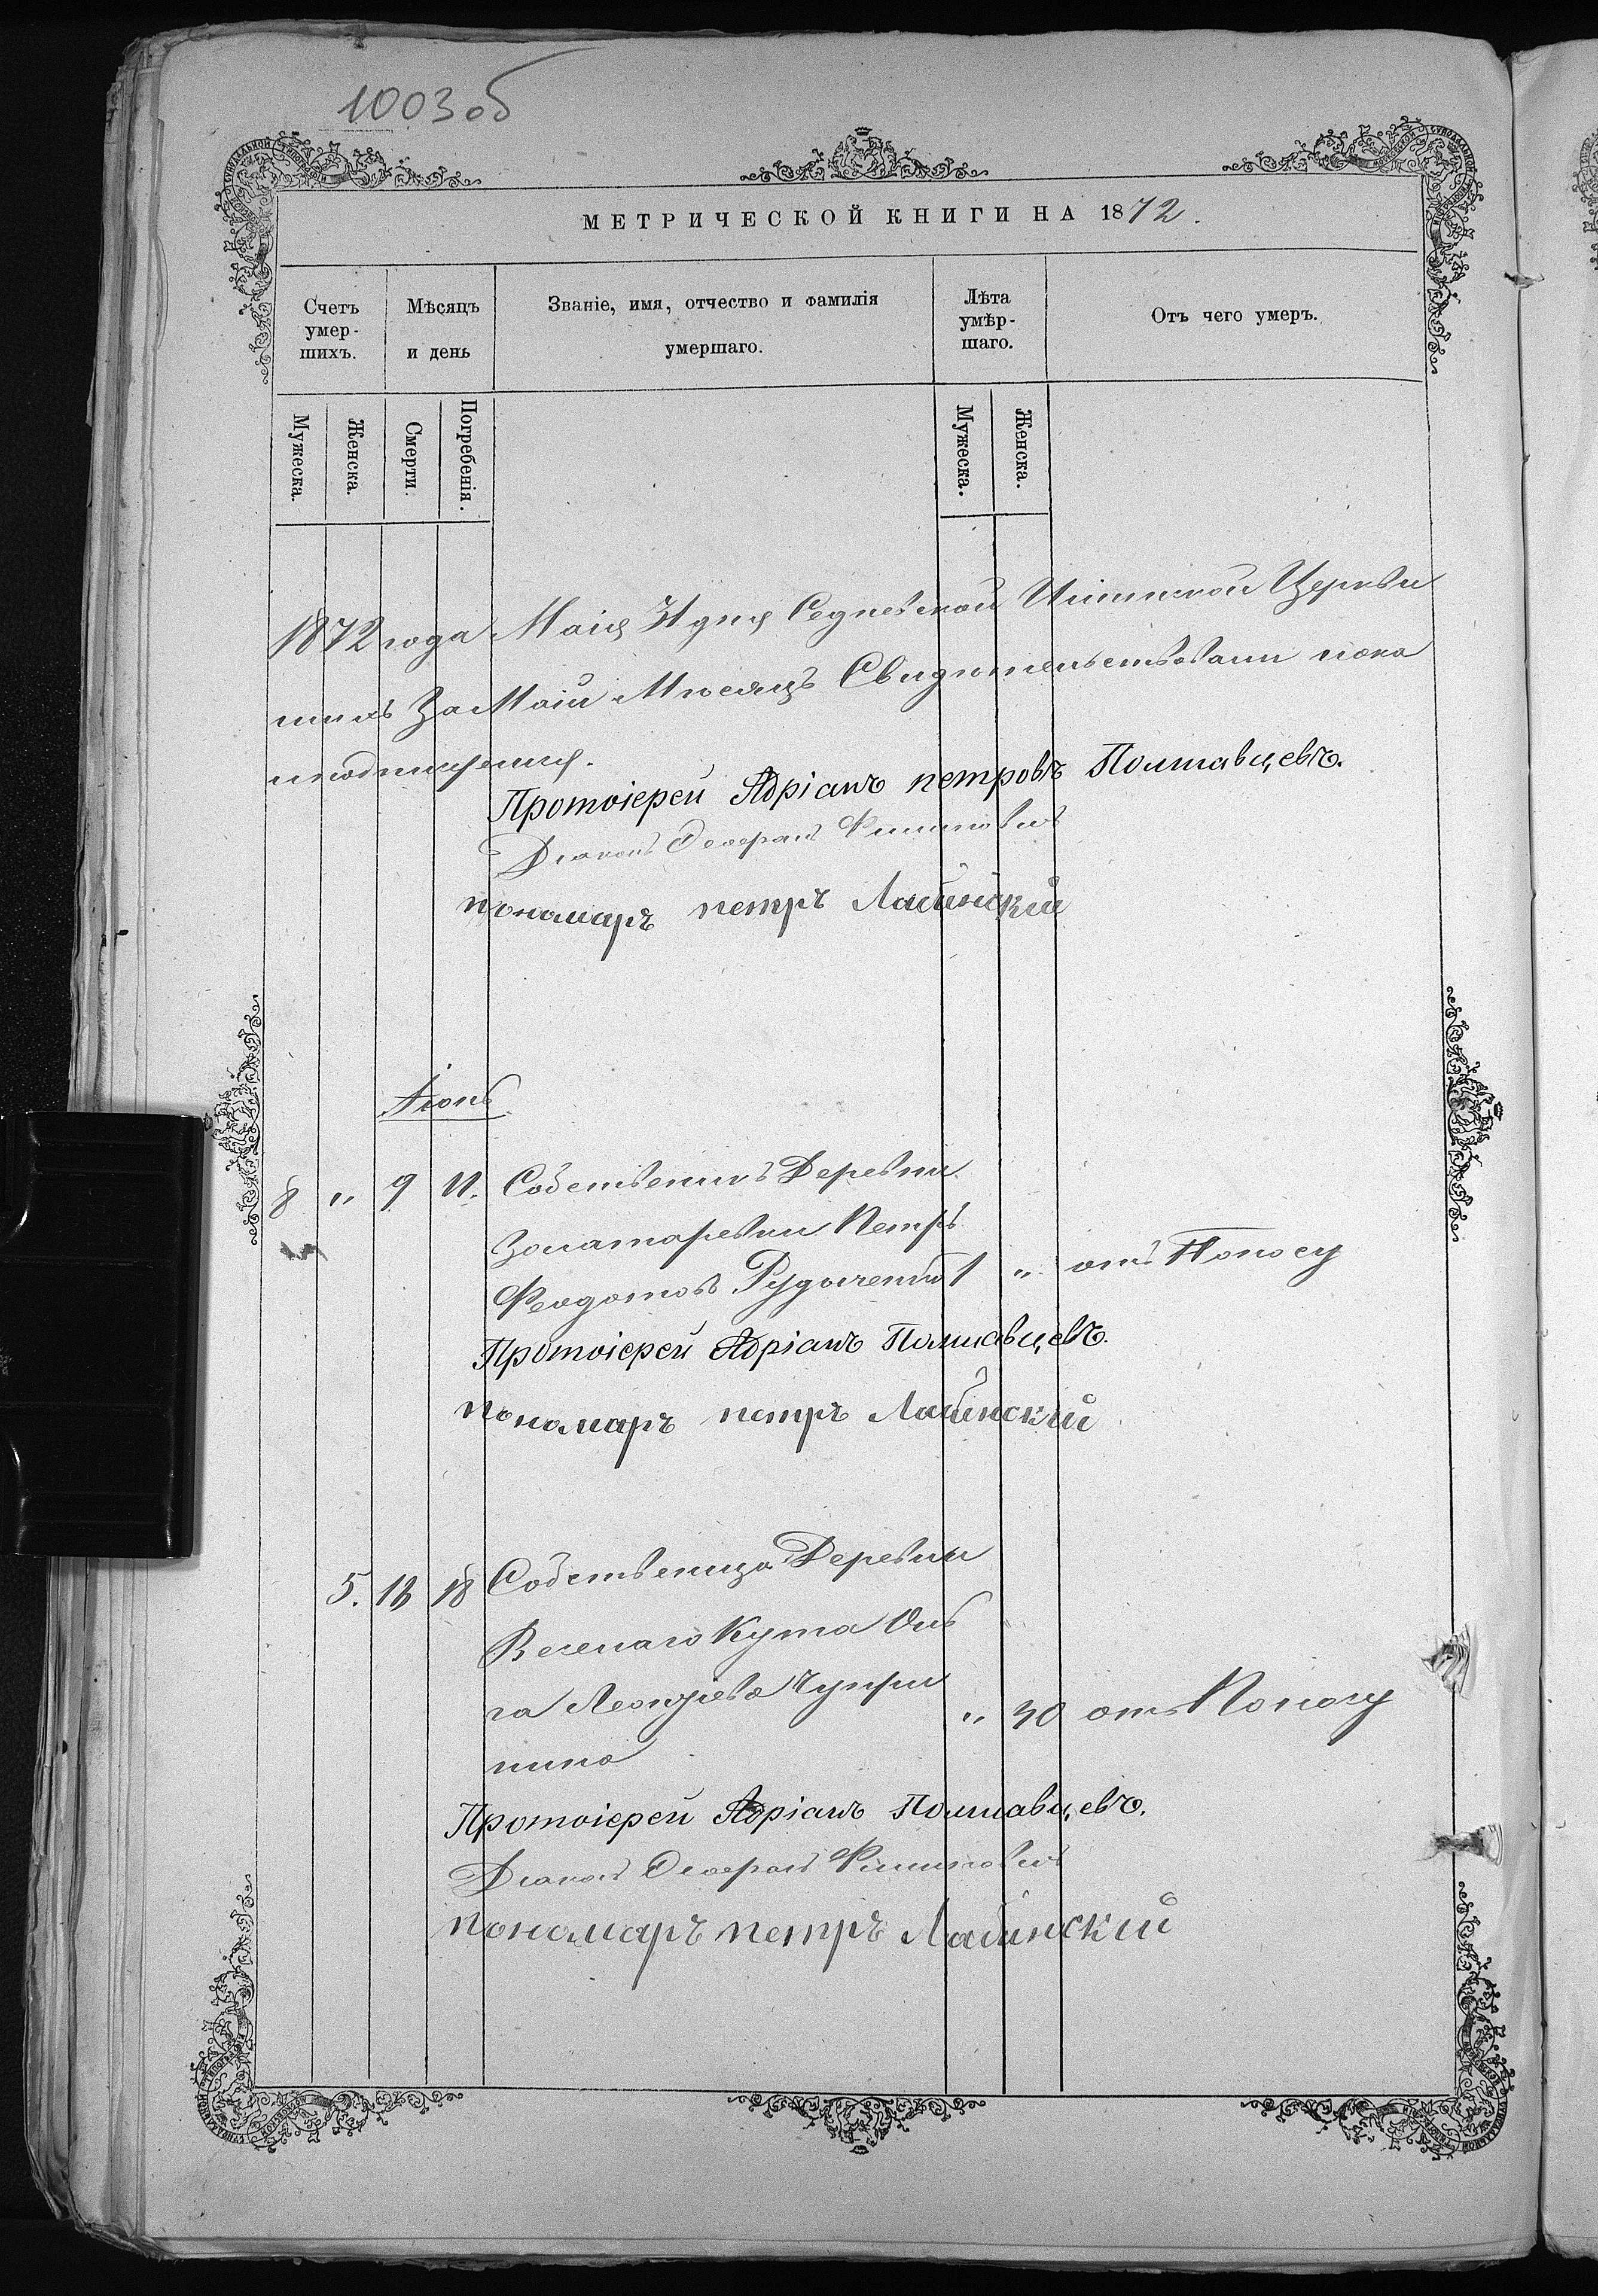 1003 об
МЕТРИЧЕСКОЙ КНИГИ НА 1872.
Счетъ умер-шихъ.
Мѣсяцъ и день
Званіе, имя, отчество и фамилія умершаго.
Лѣта умѣр-шаго.
Отъ чего умеръ.
Мужеска. Женска. Смерти. Погребенія. Мужеска. Женска.
1872 года Маія 31 дня Седневской Церкви
За Маій Мѣсяцъ Свидѣтельствовали
Протоіерей Адріанъ петровъ Полтавцевъ.
Діаконъ
пономаръ петръ Лабинский
Іюнь
8 " 9 11. Собственикъ Деревни
Золатаревки Петръ
Феодотовъ Рудиченко 1 " отъ Поносу
Протоіерей Адріанъ Полтавцевъ.
пономаръ петръ Лабинский
5. 18 Собственица Деревни
Веселаго Кута Оль
га Леонтіева Чупри
нина " 30 отъ Поносу
Протоіерей Адріанъ Полтавцевъ.
Діаконъ
пономаръ петръ Лабинский